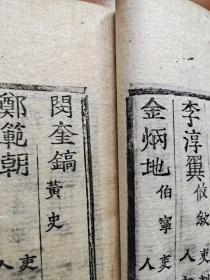 李淳翼 攸敘 吏 人
金炳地 伯寧 吏 人
閔奎鎬 黃史
鄭範朝 吏 人